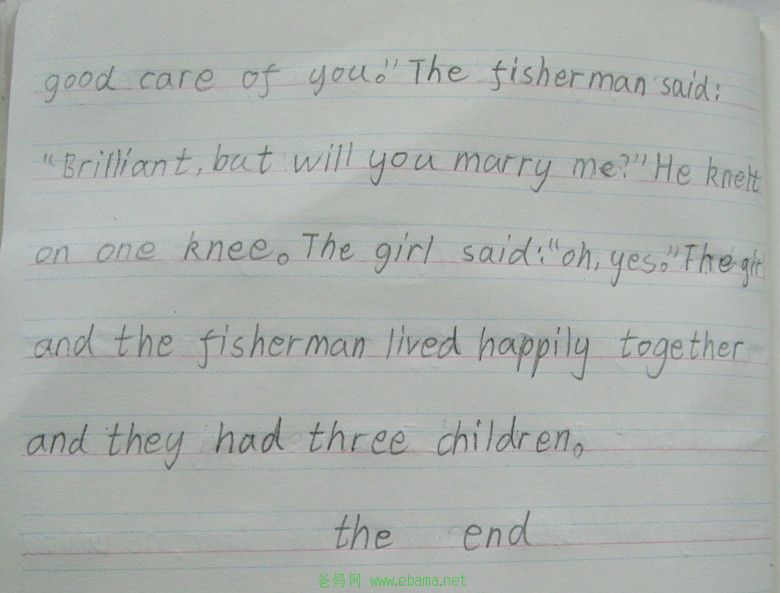 good care of you。” The fisherman said:
“Brilliant, but will you marry me?” He knelt
on one knee。The girl said:“oh, yes。” The girl
and the fisherman lived happily together
and they had three children。
the end
爸妈网 www.ebama.net